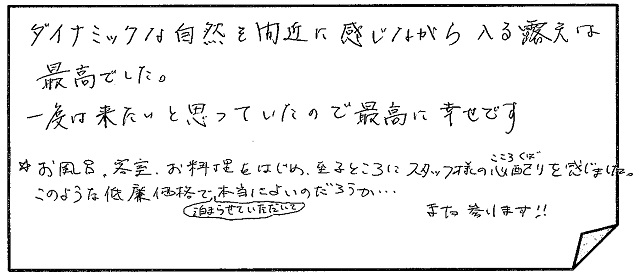 ダイナミックな自然を間近に感じながら入る露天は
最高でした。
一度は来たいと思っていたので最高に幸せです
☆お風呂、客室、お料理をはじめ、至るところにスタッフ様の心配りを感じました。
こころくば
このような低廉価格で、本当によいのだろうか…
泊まらせていただいて
また参ります!!